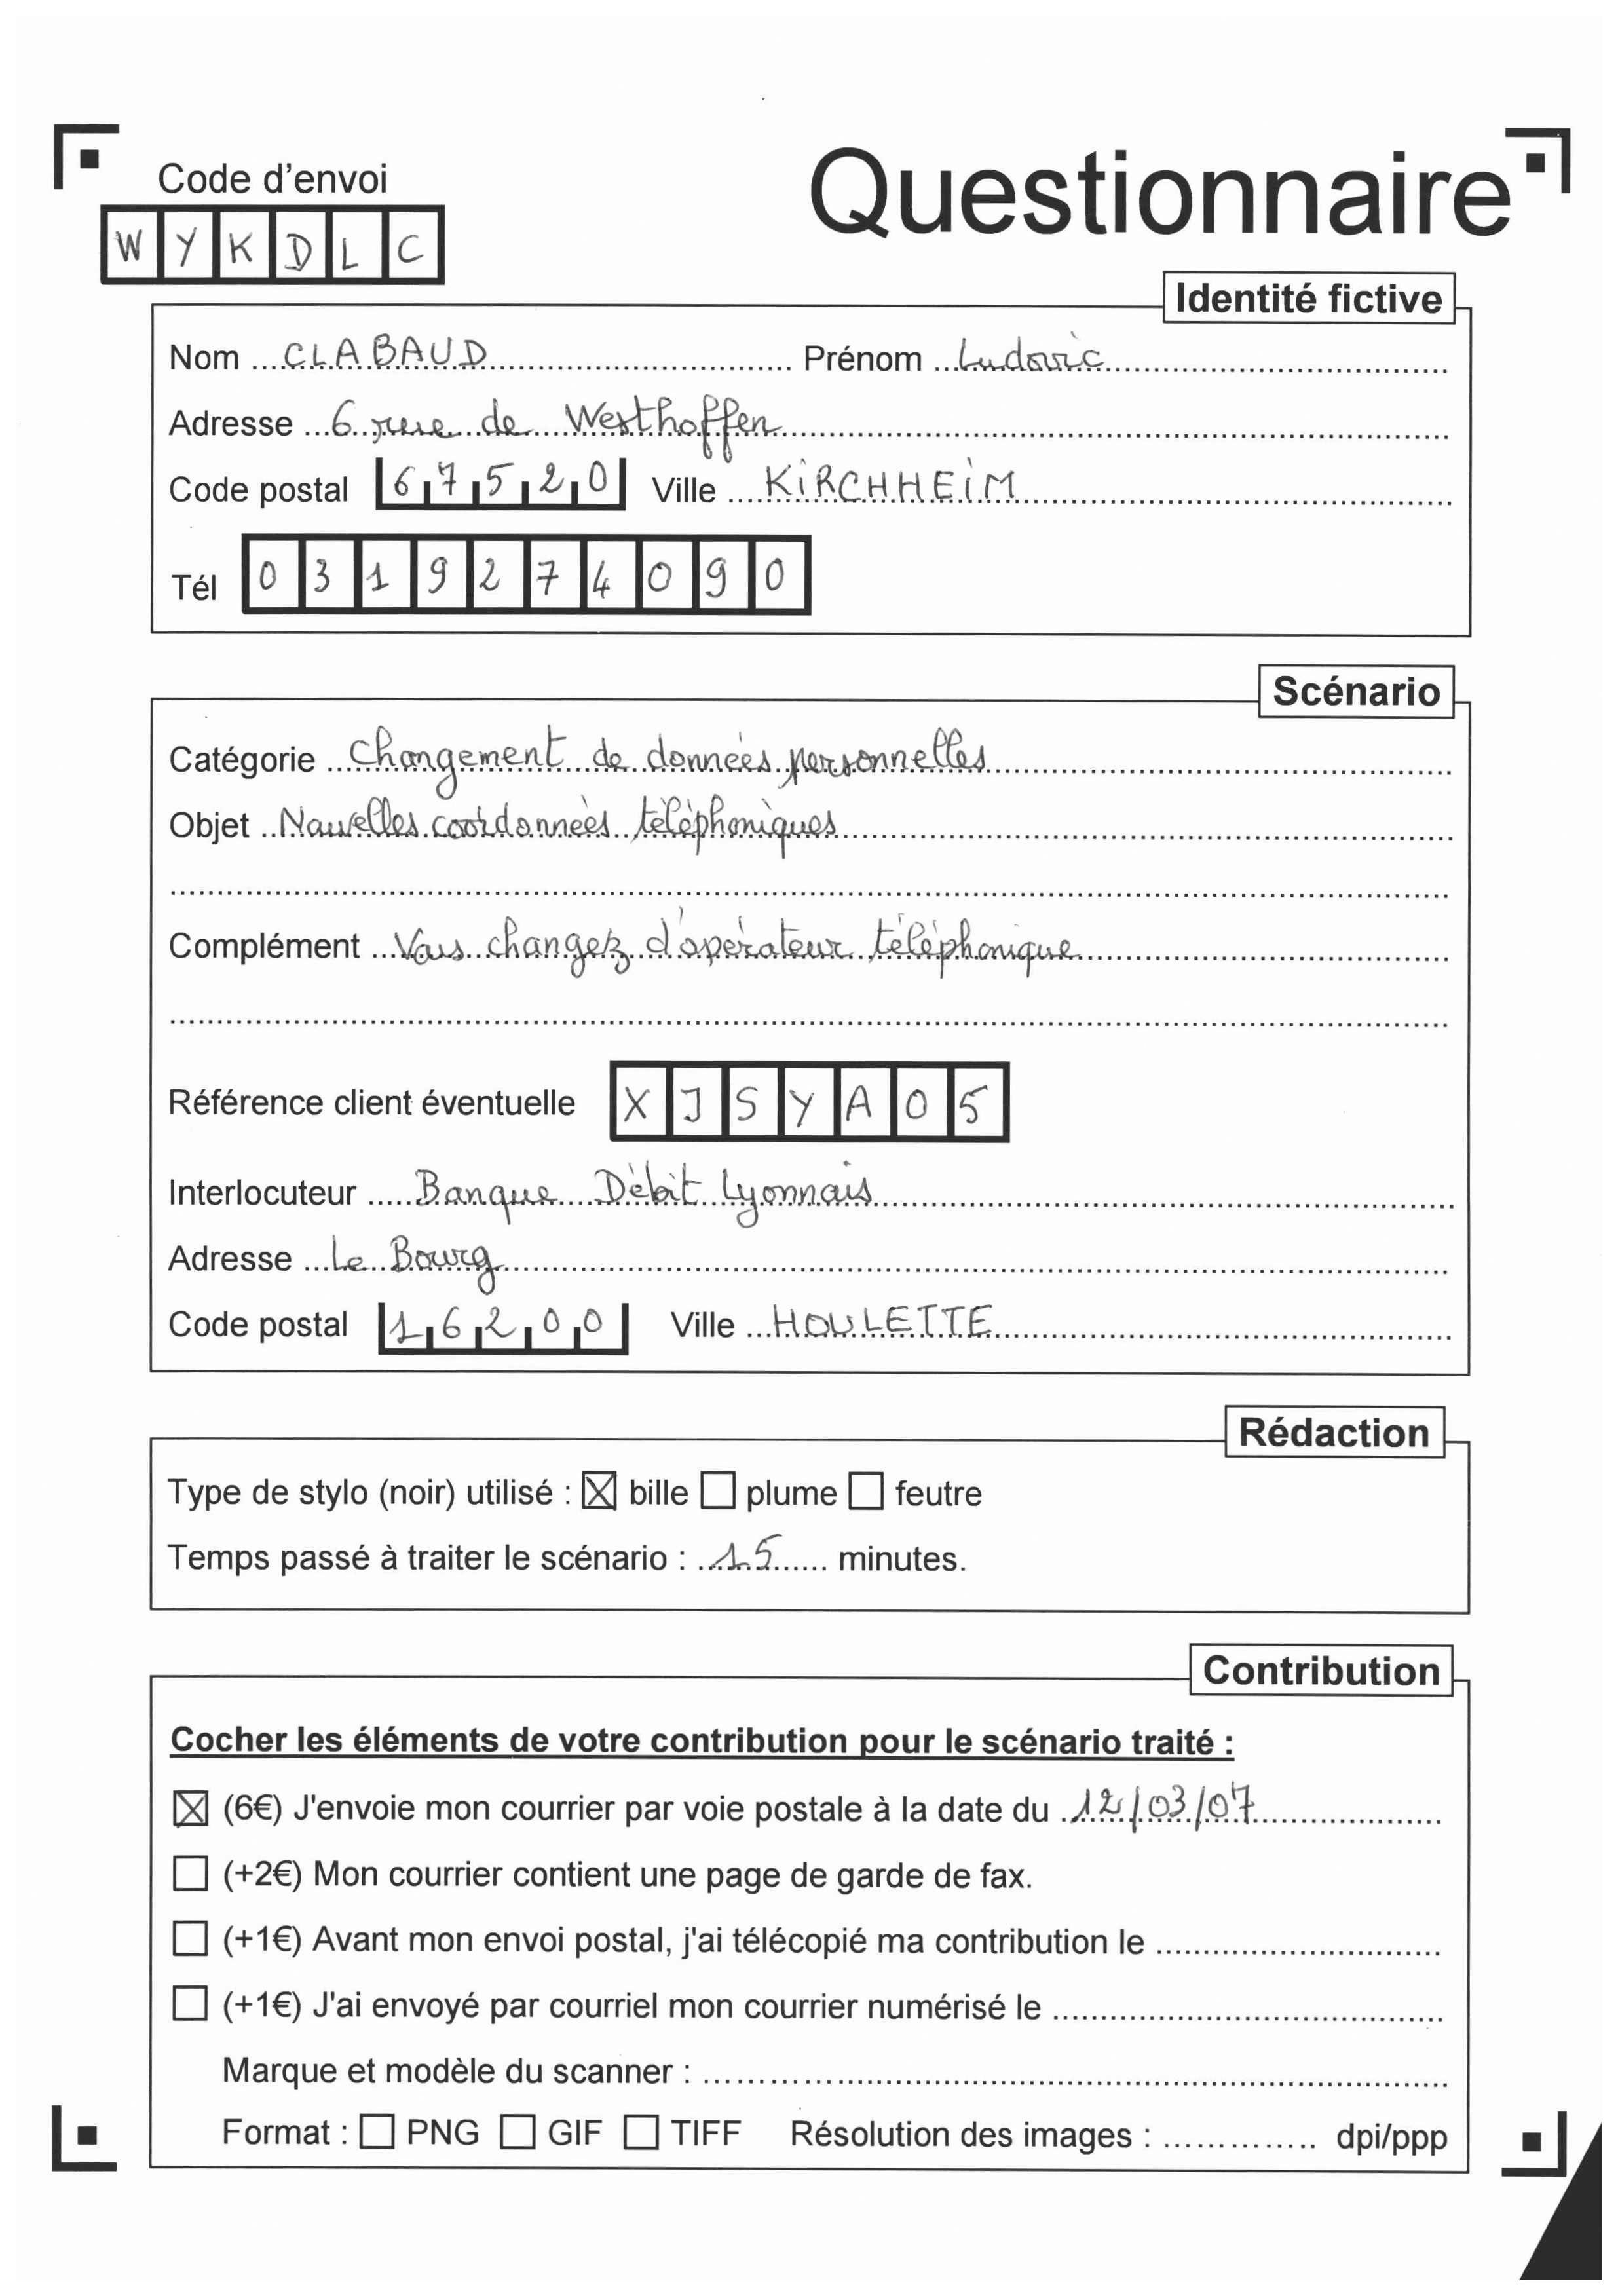 Code d'envoi
Questionnaire
W Y K D L C
Identité fictive
Nom CLABAUD Prénom Ludovic
Adresse 6 rue de Westhoffen
Code postal 67520 Ville KIRCHHEIM
Tél 0319274090
Scénario
Catégorie Changement de données personnelles
Objet Nouvelles coordonnées téléphoniques
Complément Vous changez d'opérateur téléphonique
Référence client éventuelle X J S Y A 0 5
Interlocuteur Banque Débit Lyonnais
Adresse Le Bourg
Code postal 16200 Ville HOULETTE
Rédaction
Type de stylo (noir) utilisé : ☒ bille ☐ plume ☐ feutre
Temps passé à traiter le scénario : 15 minutes.
Contribution
Cocher les éléments de votre contribution pour le scénario traité :
☒ (6€) J'envoie mon courrier par voie postale à la date du 12/03/07
☐ (+2€) Mon courrier contient une page de garde de fax.
☐ (+1€) Avant mon envoi postal, j'ai télécopié ma contribution le
☐ (+1€) J'ai envoyé par courriel mon courrier numérisé le
Marque et modèle du scanner :
Format : ☐ PNG ☐ GIF ☐ TIFF Résolution des images : dpi/ppp